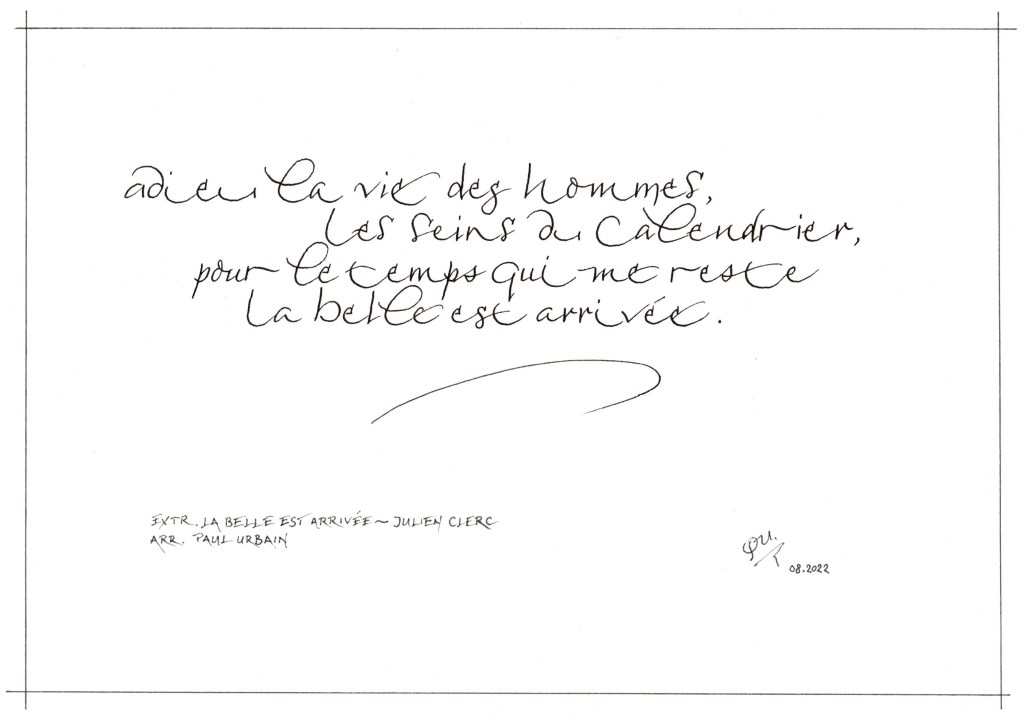 adieu la vie des hommes,
les seins du calendrier,
pour le temps qui me reste
la belle est arrivée.
EXTR. LA BELLE EST ARRIVÉE ~ JULIEN CLERC
ARR. PAUL URBAIN
PU.
08.2022